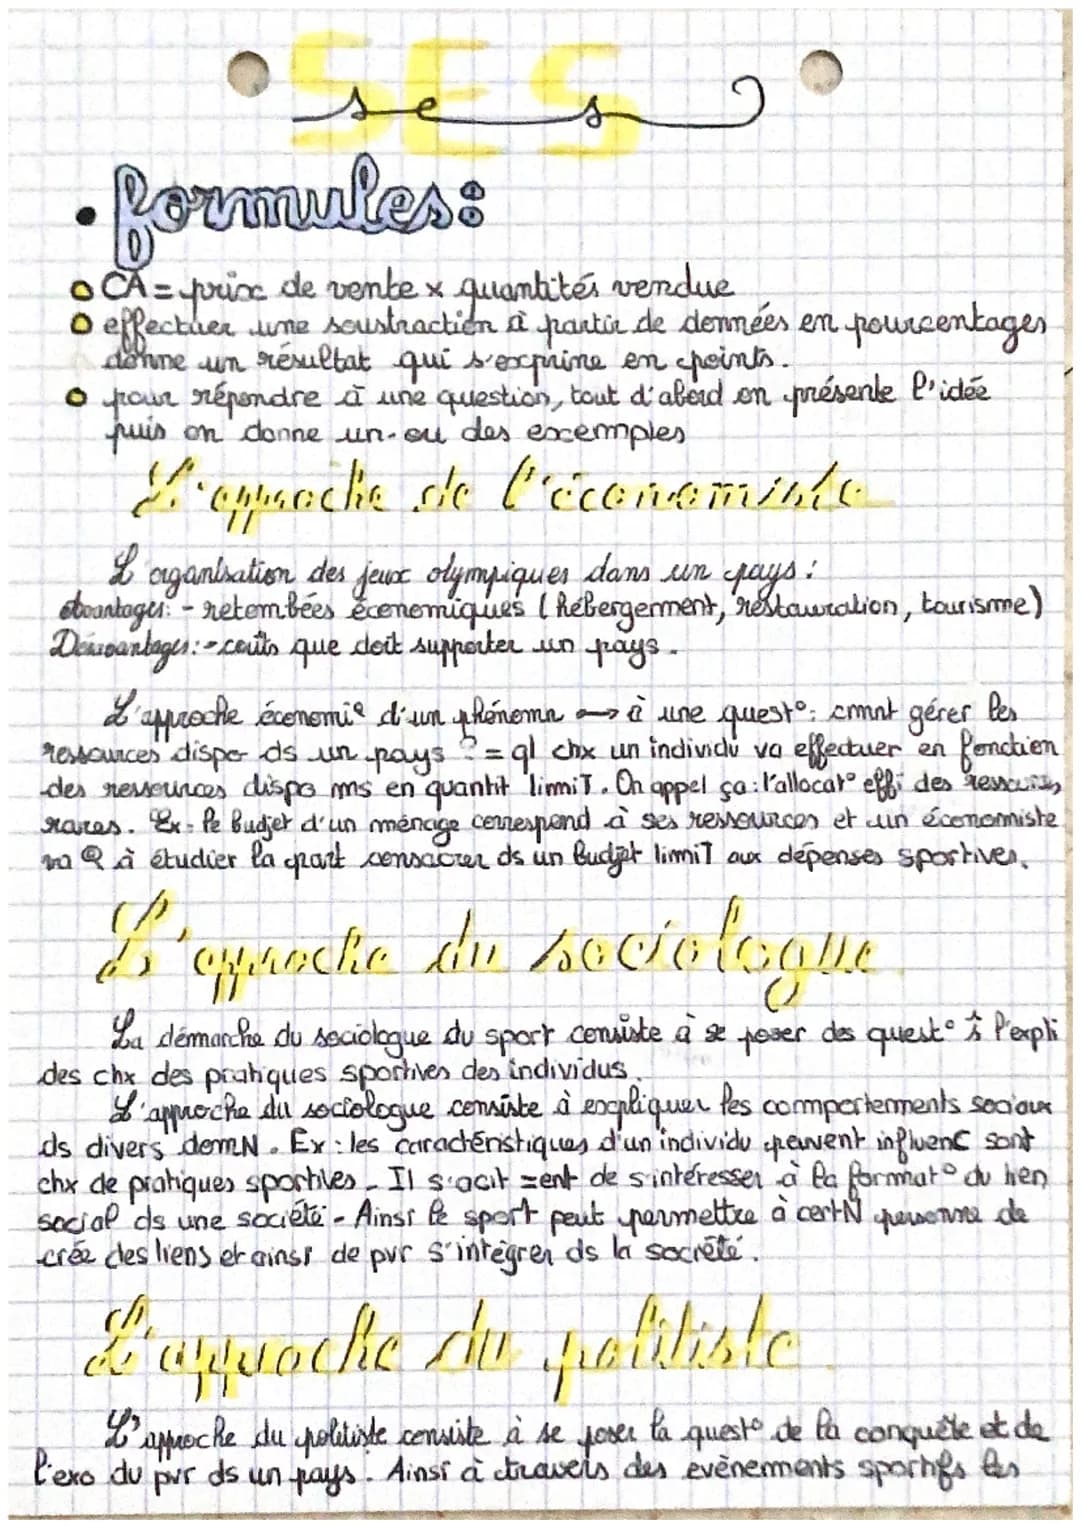 SES
ses
• formules:
CA = prix de vente x quantités vendue
effectuer une soustraction à partir de données en pourcentages
donne un résultat qui s'exprime en points.
pour répondre à une question, tout d'abord on présente l'idée
puis on donne un ou des exemples
L'approche de l'économiste
L'organisation des jeux olympiques dans un pays :
Avantages: - retombées économiques (hébergement, réstauration, tourisme)
Désavantages: - coûts que doit supporter un pays.
L'approche économiq d'un phénomn → à une quest°: cmnt gérer les
ressources dispo ds un pays ? = ql chx un individu va effectuer en fonction
des ressources dispo ms en quantit limiT. On appel ça : l'allocat° effi des ressources
rares. Ex - le budjet d'un ménage correspond à ses ressources et un économiste
va à étudier la part consacrer ds un budjet limiT aux dépenses sportives.
L'approche du sociologue
La démarche du sociologue du sport consiste à se poser des quest° l'expli
des chx des pratiques sportives des individus.
L'approche du sociologue consiste à expliquer les comportements sociaux
ds divers domN. Ex : les caractéristiques d'un individu peuvent influenC sont
chx de pratiques sportives. Il s'acit zent de s'intéresser à la format° du lien
social ds une société. Ainsi le sport peut permettre à certN personne de
crée des liens et ainsi de pvr s'intégrer ds la société.
L'approche du politiste
L'approche du politiste consiste à se poser la quest° de la conquête et de
l'exo du pvr ds un pays. Ainsi à travers des evènements sportifs les